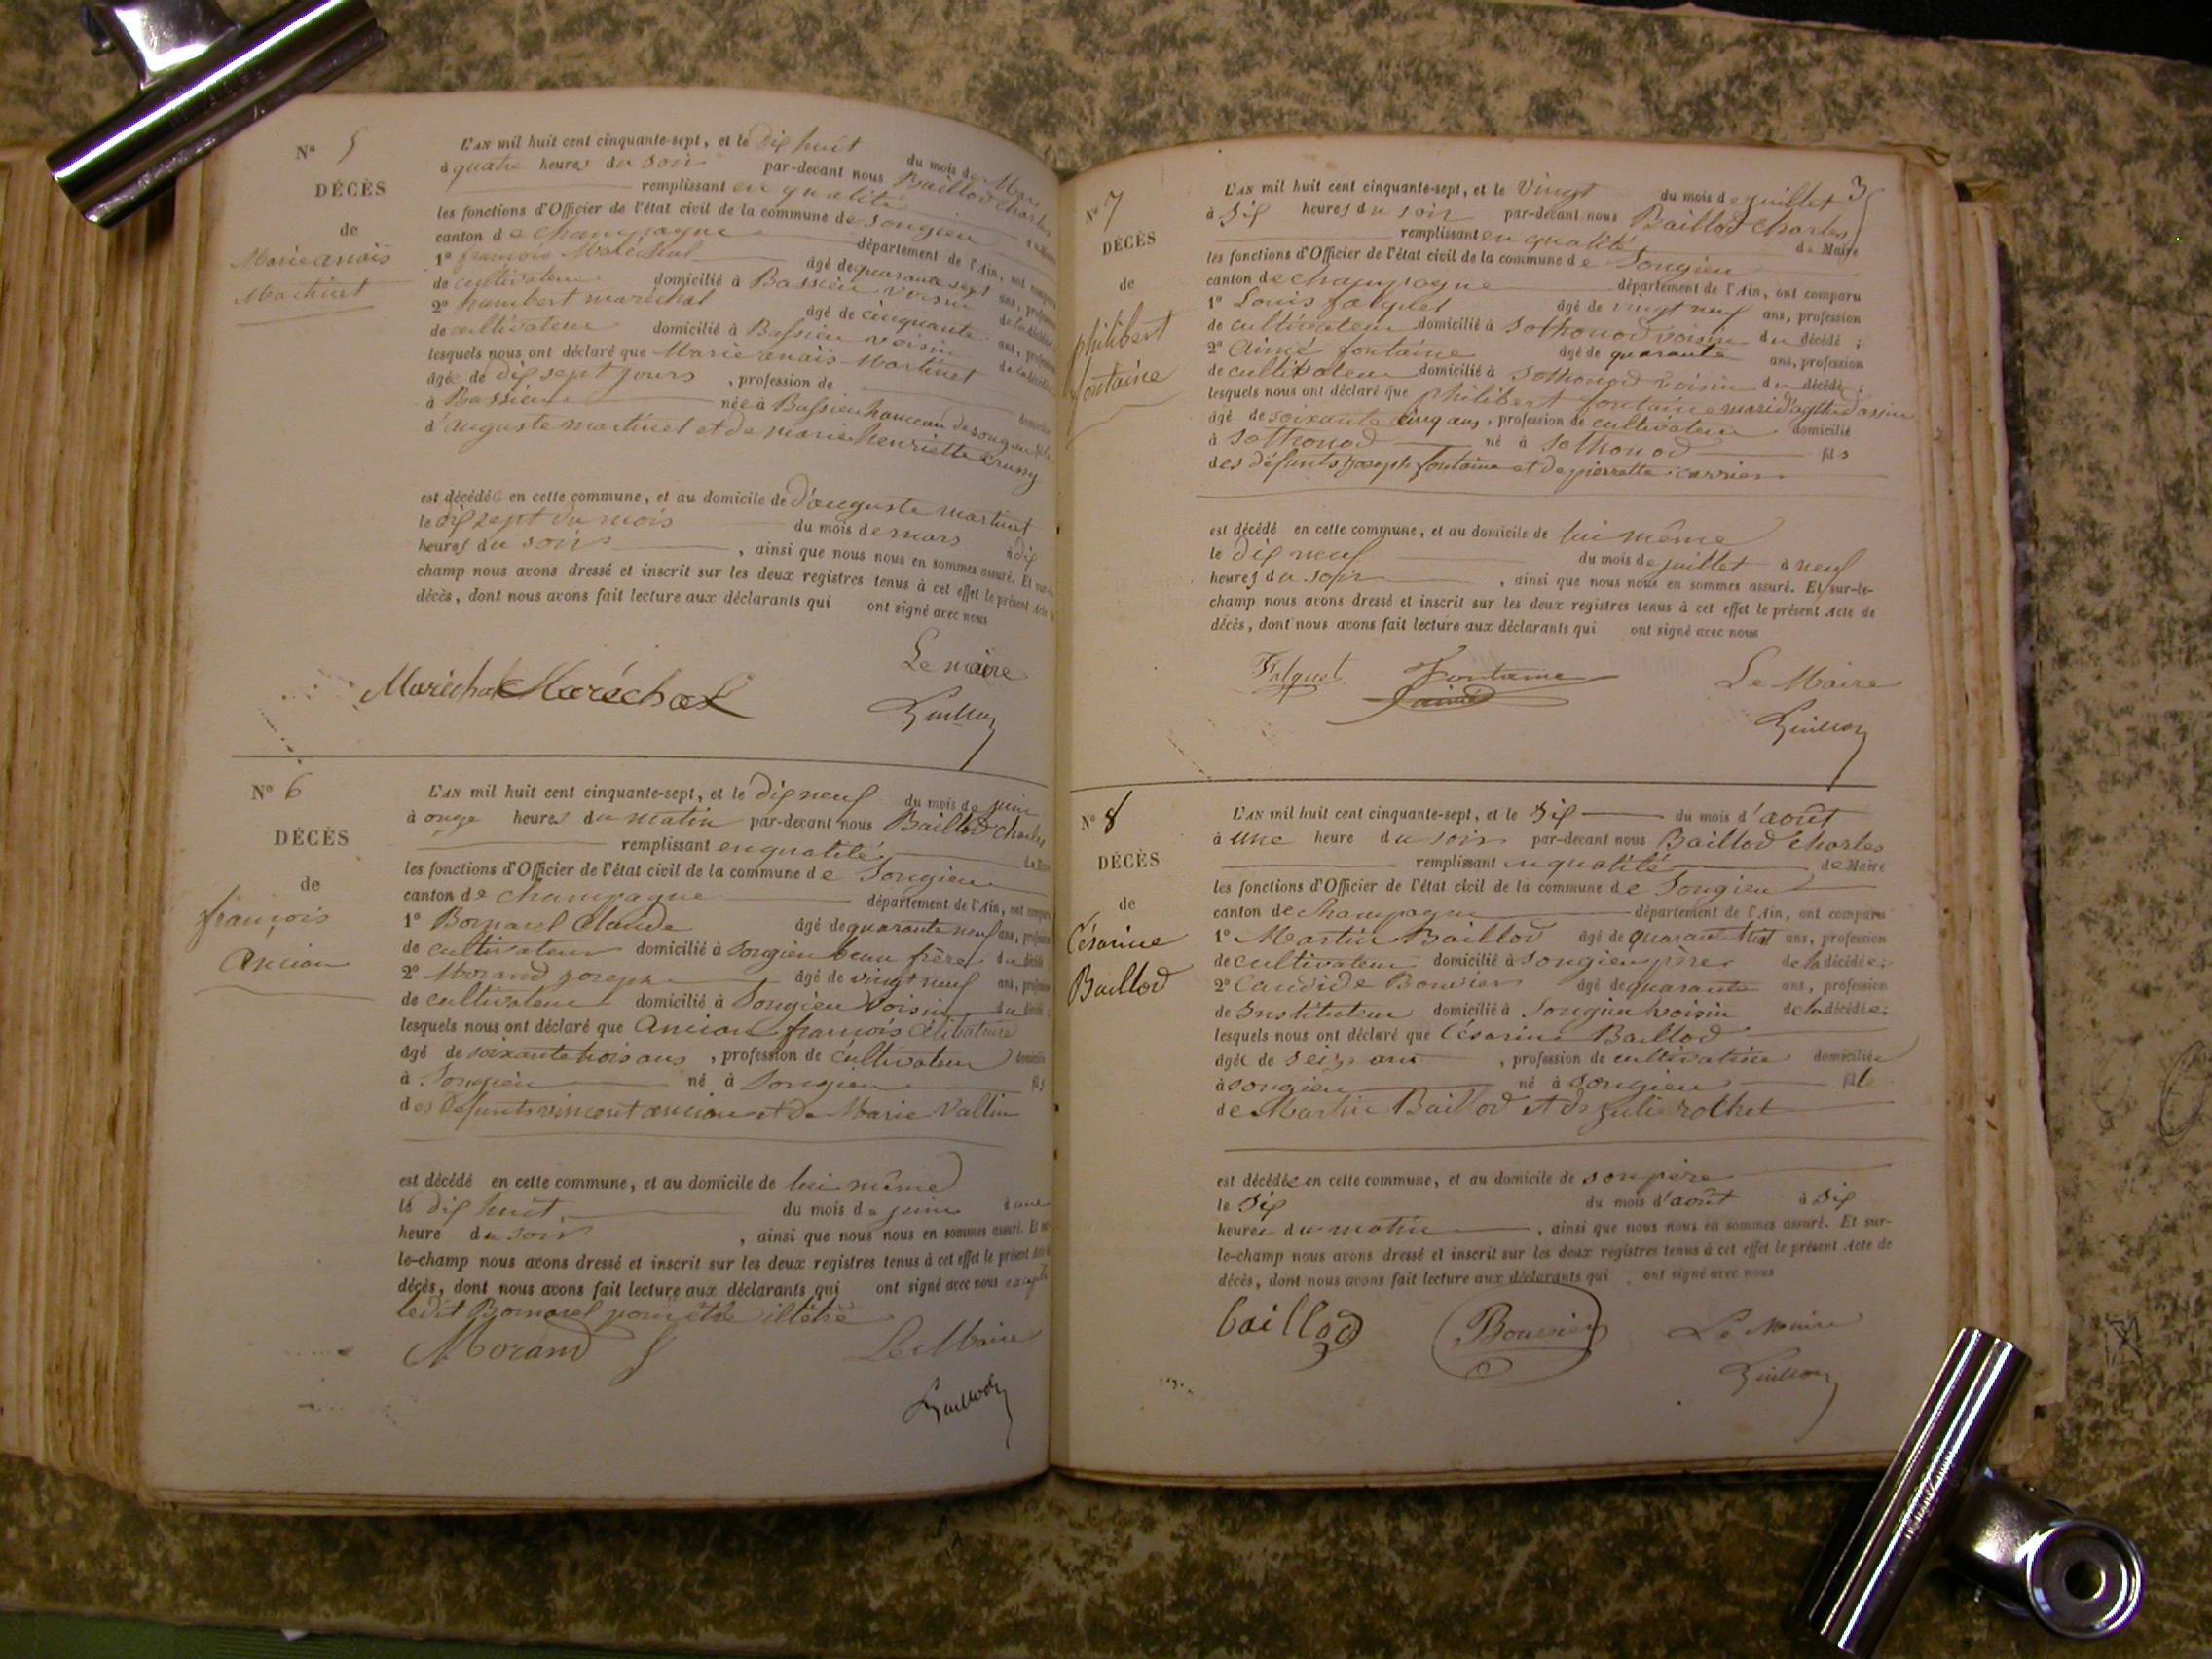 N° 5
DÉCÈS
de
Marie anaïs
Martinet
L'AN mil huit cent cinquante-sept, et le dix huit du mois de Mars
à quatre heures du soir par-devant nous Baillod Charles
remplissant en qualité
les fonctions d'Officier de l'état civil de la commune de Songieu
canton de champagne département de l'Ain, ont comparu
1° françois Maréchal âgé de quarante sept ans, profession
de cultivateur domicilié à Bassieu voisin de la décédée
2° humbert maréchal âgé de cinquante ans, profession
de cultivateur domicilié à Bassieu voisin de la décédée
lesquels nous ont déclaré que Marie anaïs Martinet
âgée de dix sept jours, profession de domiciliée
à Bassieu née à Bassieu hameau de songieu fille
d'auguste martinet et de marie henriette
est décédée en cette commune, et au domicile de d'auguste martinet
le dix sept du mois du mois de mars à dix
heures du soir, ainsi que nous nous en sommes assuré. Et sur-le-
champ nous avons dressé et inscrit sur les deux registres tenus à cet effet le présent Acte de
décès, dont nous avons fait lecture aux déclarants qui ont signé avec nous
Le maire
Maréchal Maréchal
N° 6
DÉCÈS
de
françois
Ancian
L'AN mil huit cent cinquante-sept, et le dix neuf du mois de juin
à onze heures du matin par-devant nous Baillod Charles
remplissant en qualité de Maire
les fonctions d'Officier de l'état civil de la commune de Songieu
canton de champagne département de l'Ain, ont comparu
1° Bornarel Claude âgé de quarante neuf ans, profession
de cultivateur domicilié à Songieu beau frère du décédé
2° Morand joseph âgé de vingt neuf ans, profession
de cultivateur domicilié à Songieu voisin du décédé
lesquels nous ont déclaré que Ancian françois célibataire
âgé de soixante trois ans, profession de cultivateur domicilié
à Songieu né à Songieu fils
des défunts vincent ancian et de Marie Vallin
est décédé en cette commune, et au domicile de lui même
le dix huit du mois de juin à une
heure du soir, ainsi que nous nous en sommes assuré. Et sur-
le-champ nous avons dressé et inscrit sur les deux registres tenus à cet effet le présent Acte de
décès, dont nous avons fait lecture aux déclarants qui ont signé avec nous excepté
ledit Bornarel pour être illétré
Morand J Le Maire
Baillod
3
N° 7
DÉCÈS
de
philibert
fontaine
L'AN mil huit cent cinquante-sept, et le Vingt du mois de juillet
à dix heures du soir par-devant nous Baillod Charles
remplissant en qualité de Maire
les fonctions d'Officier de l'état civil de la commune de Songieu
canton de champagne département de l'Ain, ont comparu
1° Louis falquet âgé de vingt neuf ans, profession
de cultivateur domicilié à Sothonod voisin du décédé;
2° Aimé fontaine âgé de quarante ans, profession
de cultivateur domicilié à Sothonod voisin du décédé;
lesquels nous ont déclaré que philibert fontaine mari d'agathe
âgé de soixante cinq ans, profession de cultivateur domicilié
à Sothonod né à Sothonod fils
des défunts joseph fontaine et de pierrette carrier
est décédé en cette commune, et au domicile de lui même
le dix neuf du mois de juillet à neuf
heures du soir, ainsi que nous nous en sommes assuré. Et sur-le-
champ nous avons dressé et inscrit sur les deux registres tenus à cet effet le présent Acte de
décès, dont nous avons fait lecture aux déclarants qui ont signé avec nous
Falquet Fontaine Le Maire
aimé
N° 8
DÉCÈS
de
Césarine
Baillod
L'AN mil huit cent cinquante-sept, et le dix du mois d'août
à une heure du soir par-devant nous Baillod Charles
remplissant en qualité de Maire
les fonctions d'Officier de l'état civil de la commune de Songieu
canton de champagne département de l'Ain, ont comparu
1° Martin Baillod âgé de quarante huit ans, profession
de cultivateur domicilié à Songieu père de la décédée;
2° Candide Bouvier âgé de quarante ans, profession
de Instituteur domicilié à Songieu voisin de la décédée;
lesquels nous ont déclaré que Césarine Baillod
âgée de seize ans, profession de cultivatrice domiciliée
à songieu né à Songieu fille
de Martin Baillod et de julie rothet
est décédée en cette commune, et au domicile de son père
le dix du mois d'août à dix
heures du matin, ainsi que nous nous en sommes assuré. Et sur-
le-champ nous avons dressé et inscrit sur les deux registres tenus à cet effet le présent Acte de
décès, dont nous avons fait lecture aux déclarants qui ont signé avec nous
baillod Bouvier Le Maire